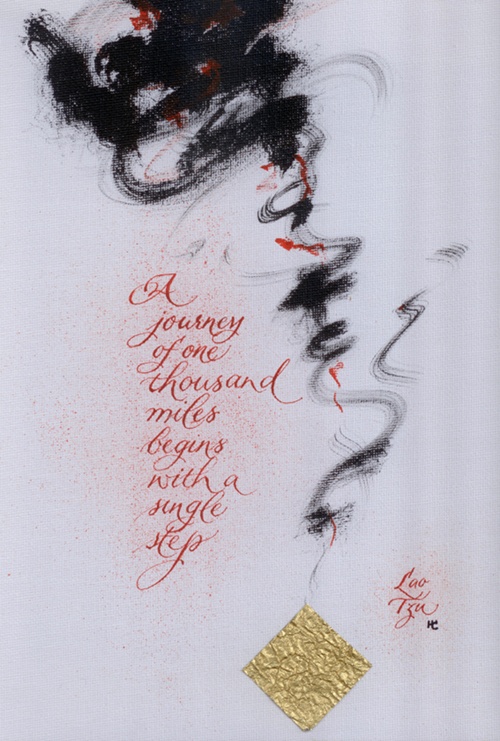 A
journey
of one
thousand
miles
begins
with a
single
step
Lao
Tzu